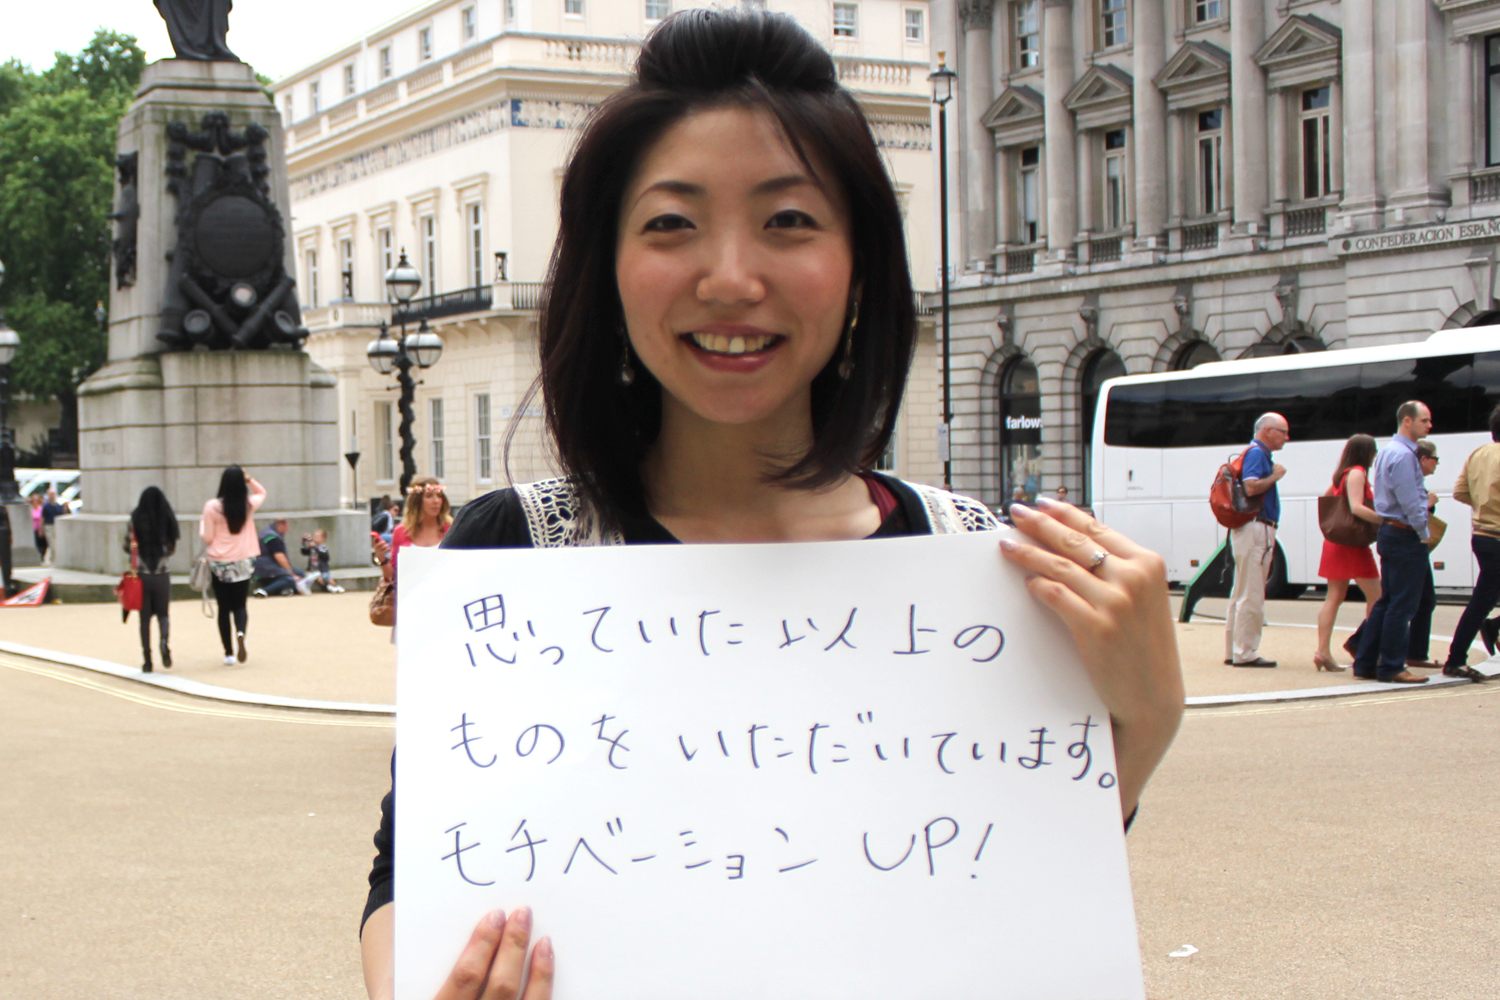 CONFEDERACION ESPAÑO
farlows
思っていた以上の
ものを いただいています。
モチベーション UP!